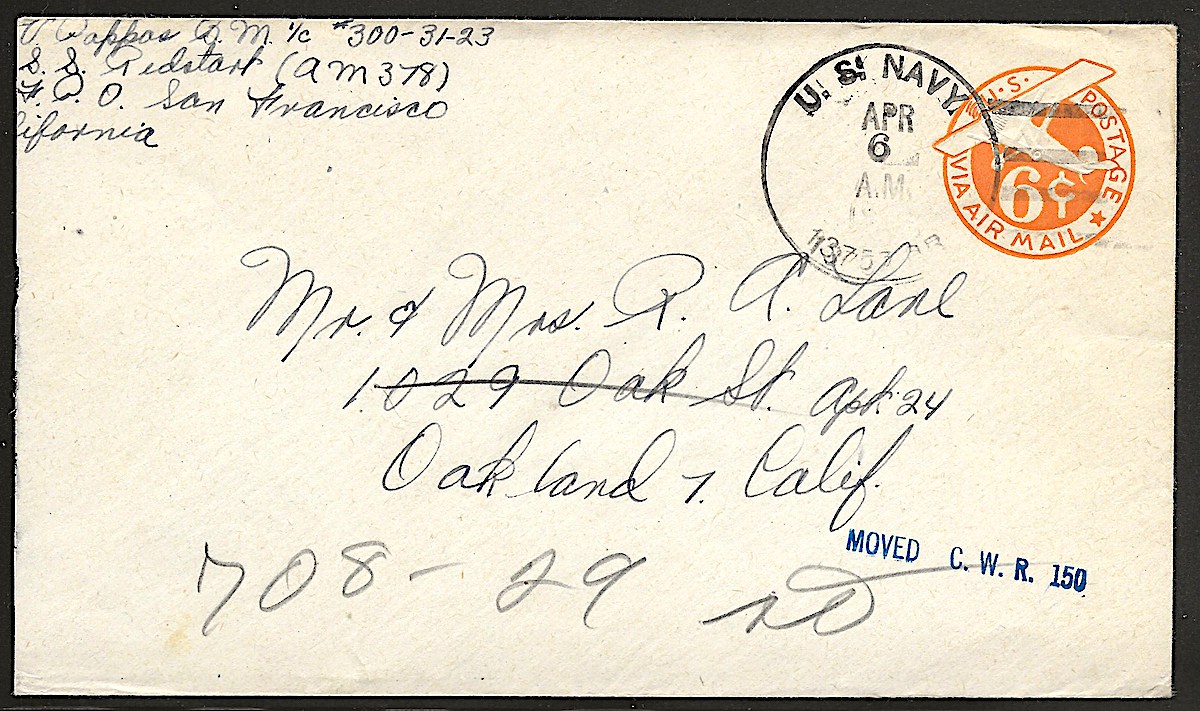 Pappas Q.M. 1/c #300-31-23
S. S. Redstart (AM 378)
F. P. O. San Francisco
lifornia
U. S. NAVY
APR
6
A.M.
13753
U.S. POSTAGE
6¢
VIA AIR MAIL
Mr. & Mrs. R. A. Lane
1029 Oak St. Apt. 24
Oakland 7. Calif.
MOVED C. W. R. 150
708 - 29